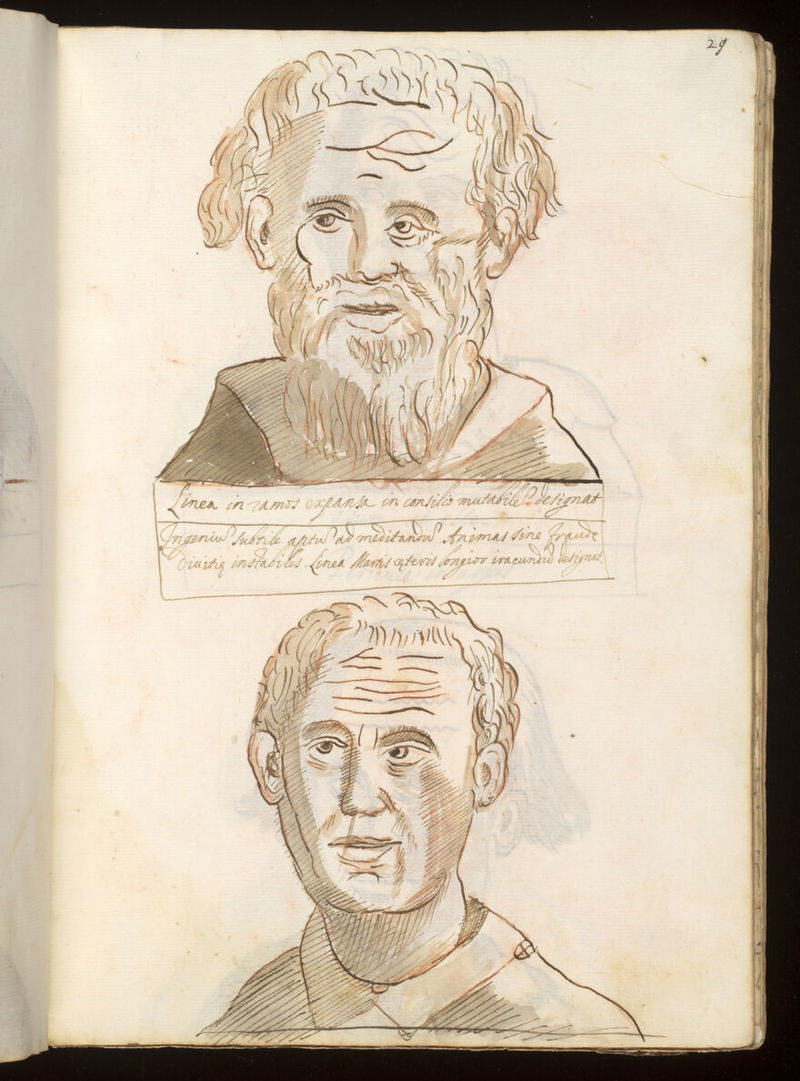 29
Linea in ramos expansa in consilio mutabile᷒ designat
Ingeniu᷒ subtile aptu᷒ ad meditandu᷒ Animas sine fraude
Divitiq instabiles. Linea Martis cęteris longior iracundu᷒ designat.